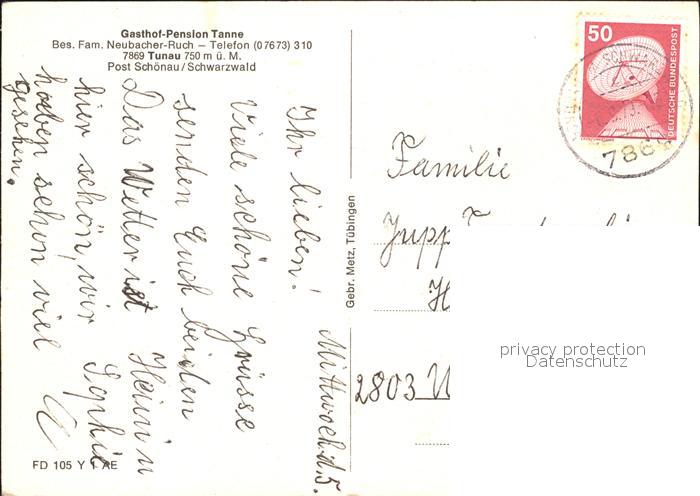 Gasthof-Pension Tanne
Bes. Fam. Neubacher-Ruch – Telefon (07673) 310
7869 Tunau 750 m ü. M.
Post Schönau/Schwarzwald
Mittwoch d. 5.
Ihr lieben!
Viele schöne Grüsse
senden Euch beiden
Das Wetter ist
hier schön, wir
haben schon viel
gesehen.
Sophie
FD 105 Y 1 AE
Gebr. Metz, Tübingen
50
DEUTSCHE BUNDESPOST
786
Familie
Jupp
2803
privacy protection
Datenschutz